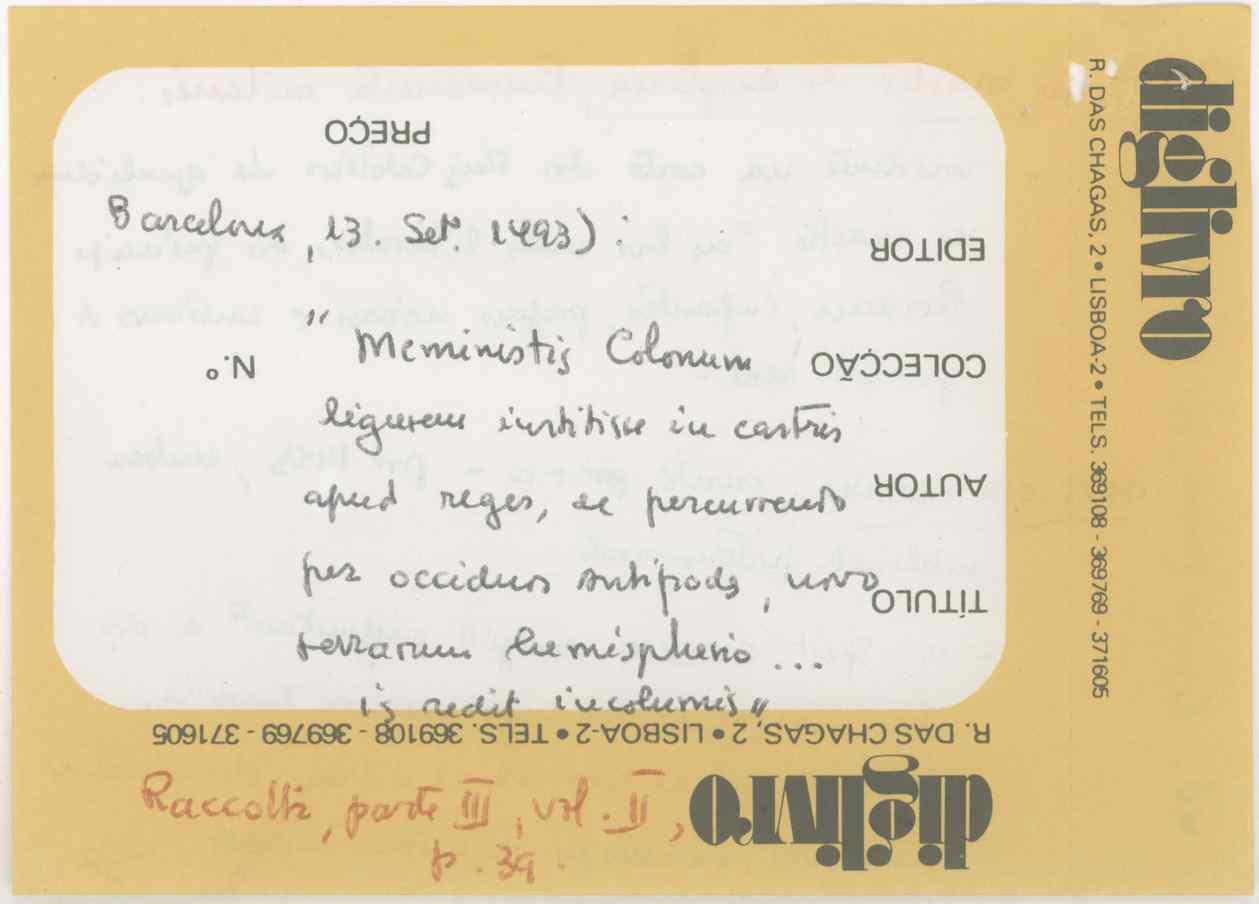 PREÇO
Barcelona, 13. Set. 1493) :
EDITOR
" Meministis Colonum
COLECÇÃO
N.º
ligurem institisse in castris
apud reges, de percurrendo
AUTOR
per occiduos antipodas, novo
TÍTULO
terrarum hemispherio ...
is redit incolumis"
R. DAS CHAGAS, 2 • LISBOA-2 • TELS. 369108 - 369769 - 371605
diglivro
Raccolta, parte III, vol. II,
p. 39.
diglivro
R. DAS CHAGAS, 2 • LISBOA-2 • TELS. 369108 - 369769 - 371605